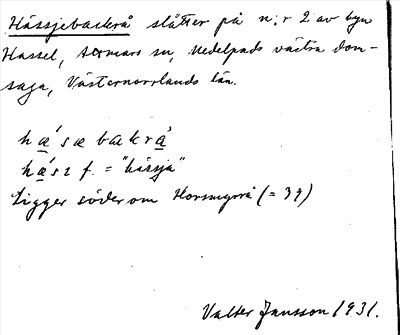 Hässjebackrå slåtter på n:r 2 av byn
Hassel, Stormars sn, Medelpads västra dom-
saga, Västernorrlands län.
hæ´sæbakrå`
hæ´sı f. = "hässja"
Ligger söder om Horsmyrrå (= 39)
Valter Jansson 1931.